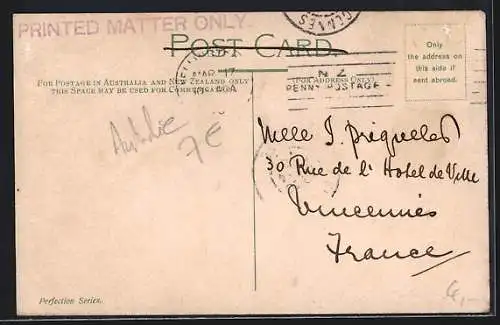 PRINTED MATTER ONLY.
POST CARD
Only
the address on
this side if
sent abroad.
MAR 17
N Z
PENNY POSTAGE
FOR POSTAGE IN AUSTRALIA AND NEW ZEALAND ONLY
THIS SPACE MAY BE USED FOR COMMUNICATION.
(FOR ADDRESS ONLY)
Australie
7 €
Melle J.
30 Rue de l'Hotel de Ville
Vincennes
France
Perfection Series.